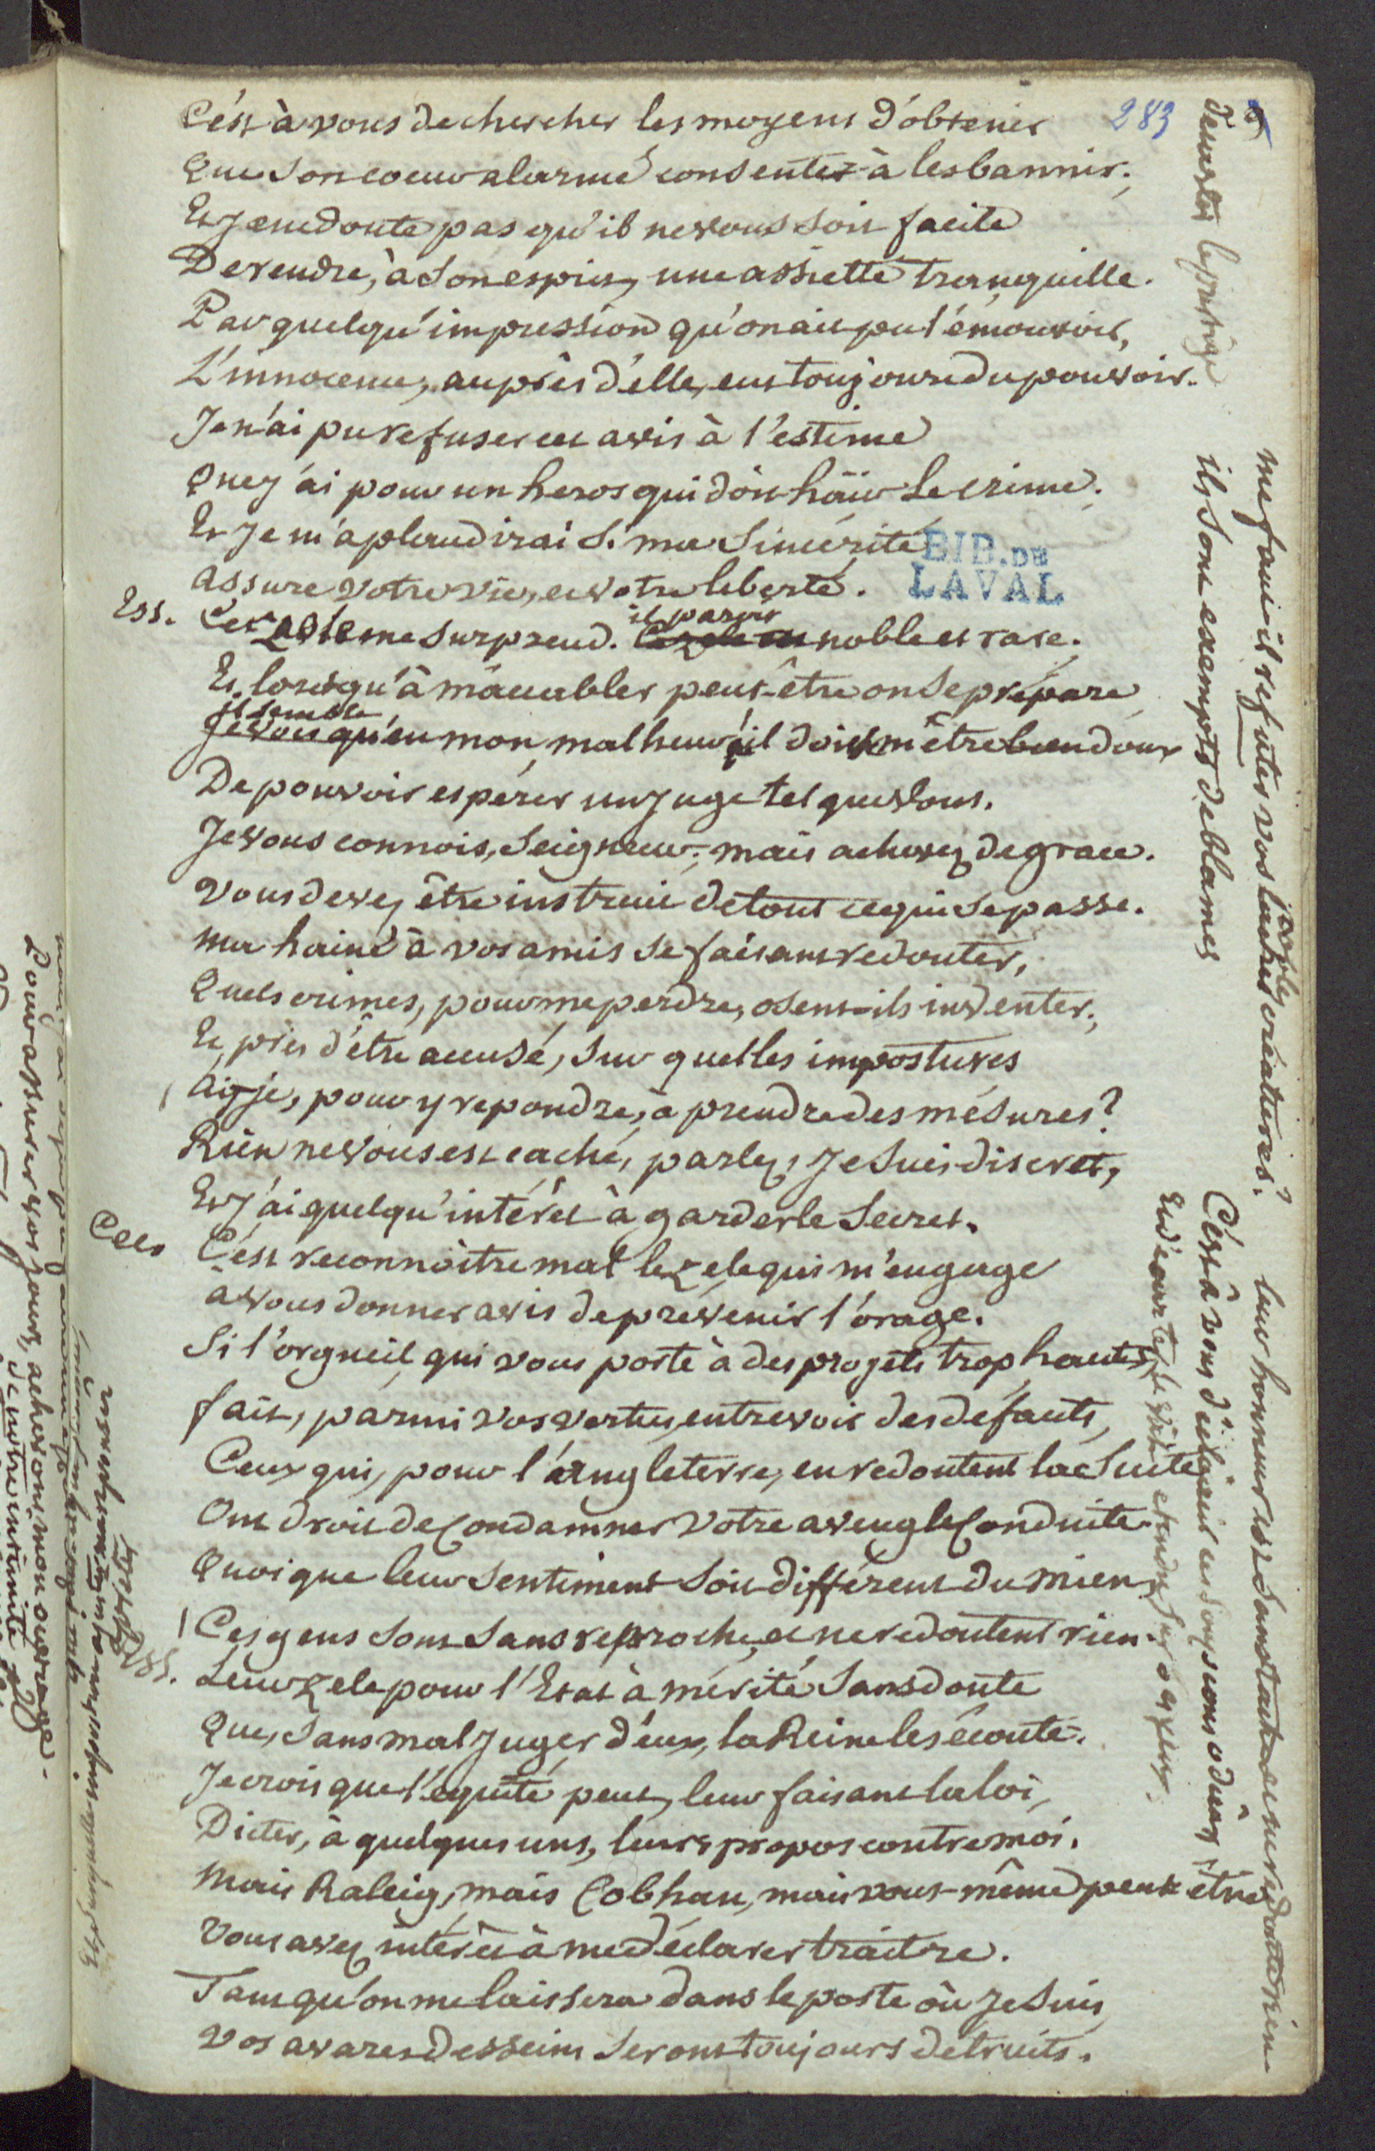 283
C'est à vous de chercher les moyens d'obtenir
Que son coeur alarmé consente à les bannir.
Et je ne doute pas qu'il ne vous soit facile
De rendre, à son esprit, une assiette tranquille.
Par quelqu'impression qu'on ait pu l'émouvoir,
L'innocence, auprès d'elle, eut toujours du pouvoir.
Je n'ai pu refuser cet avis à l'estime
Que j'ai pour un heros qui doit haïr le crime.
Et je m'aplaudirai si ma sincérité
assure votre vie, et votre liberté.
BIB. DE
LAVAL
Ess. Ce zele me surprend. il paroit noble et rare.
Et lorsqu'à m'accabler peut-être on se prépare
il semble
Je vois qu'en mon malheur il doit m'être bien doux
De pouvoir espérer un juge tel que vous.
Je vous connois, Seigneur; mais achevez de grace.
Vous devez être instruit de tout ce qui se passe.
Ma haine à vos amis se faisant redouter,
Quels crimes, pour me perdre, osent-ils inventer;
Et près d'être accusé, sur quelles impostures
Ai-je, pour y repondre, à prendre des mesures?
Rien ne vous est caché, parlez, Je suis discret,
Et j'ai quelqu'intérêt à garder le secret.
Cecs C'est reconnoître mal le zele qui m'engage
a vous donner avis de prévenir l'orage.
Si l'orgueil, qui vous porte à des projets trop hauts
fait, parmi vos vertus, entrevoir des défauts,
Ceux qui, pour l'angleterre, en redoutent la suite
Ont droit de Condamner votre aveugle Conduite.
Quoique leur sentiment soit différent du mien
Ces gens sont sans reproche, et ne redoutent rien.
Ess. Leur zele pour l'Etat à mérité sans doute
Que, sans mal juger d'eux, la Reine les écoute.
Je crois que l'équité peut, leur faisant la loi,
Dicter, à quelques uns, leurs propos contre moi.
Mais Raleig, mais Cobhan, mais vous-même peut être
Vous avez intérêt à me déclarer traitre.
Tant qu'on me laissera dans le poste où je suis
Vos avares desseins seront toujours detruits.
me faut-il refuter vos laches créatures?
leur honneur est sans tache et ne redoute rien
ils sont exempts de blames
C'est à vous d'éclaircir ces soupçons odieux
Pour assurer vos jours, achevons mon ouvrage